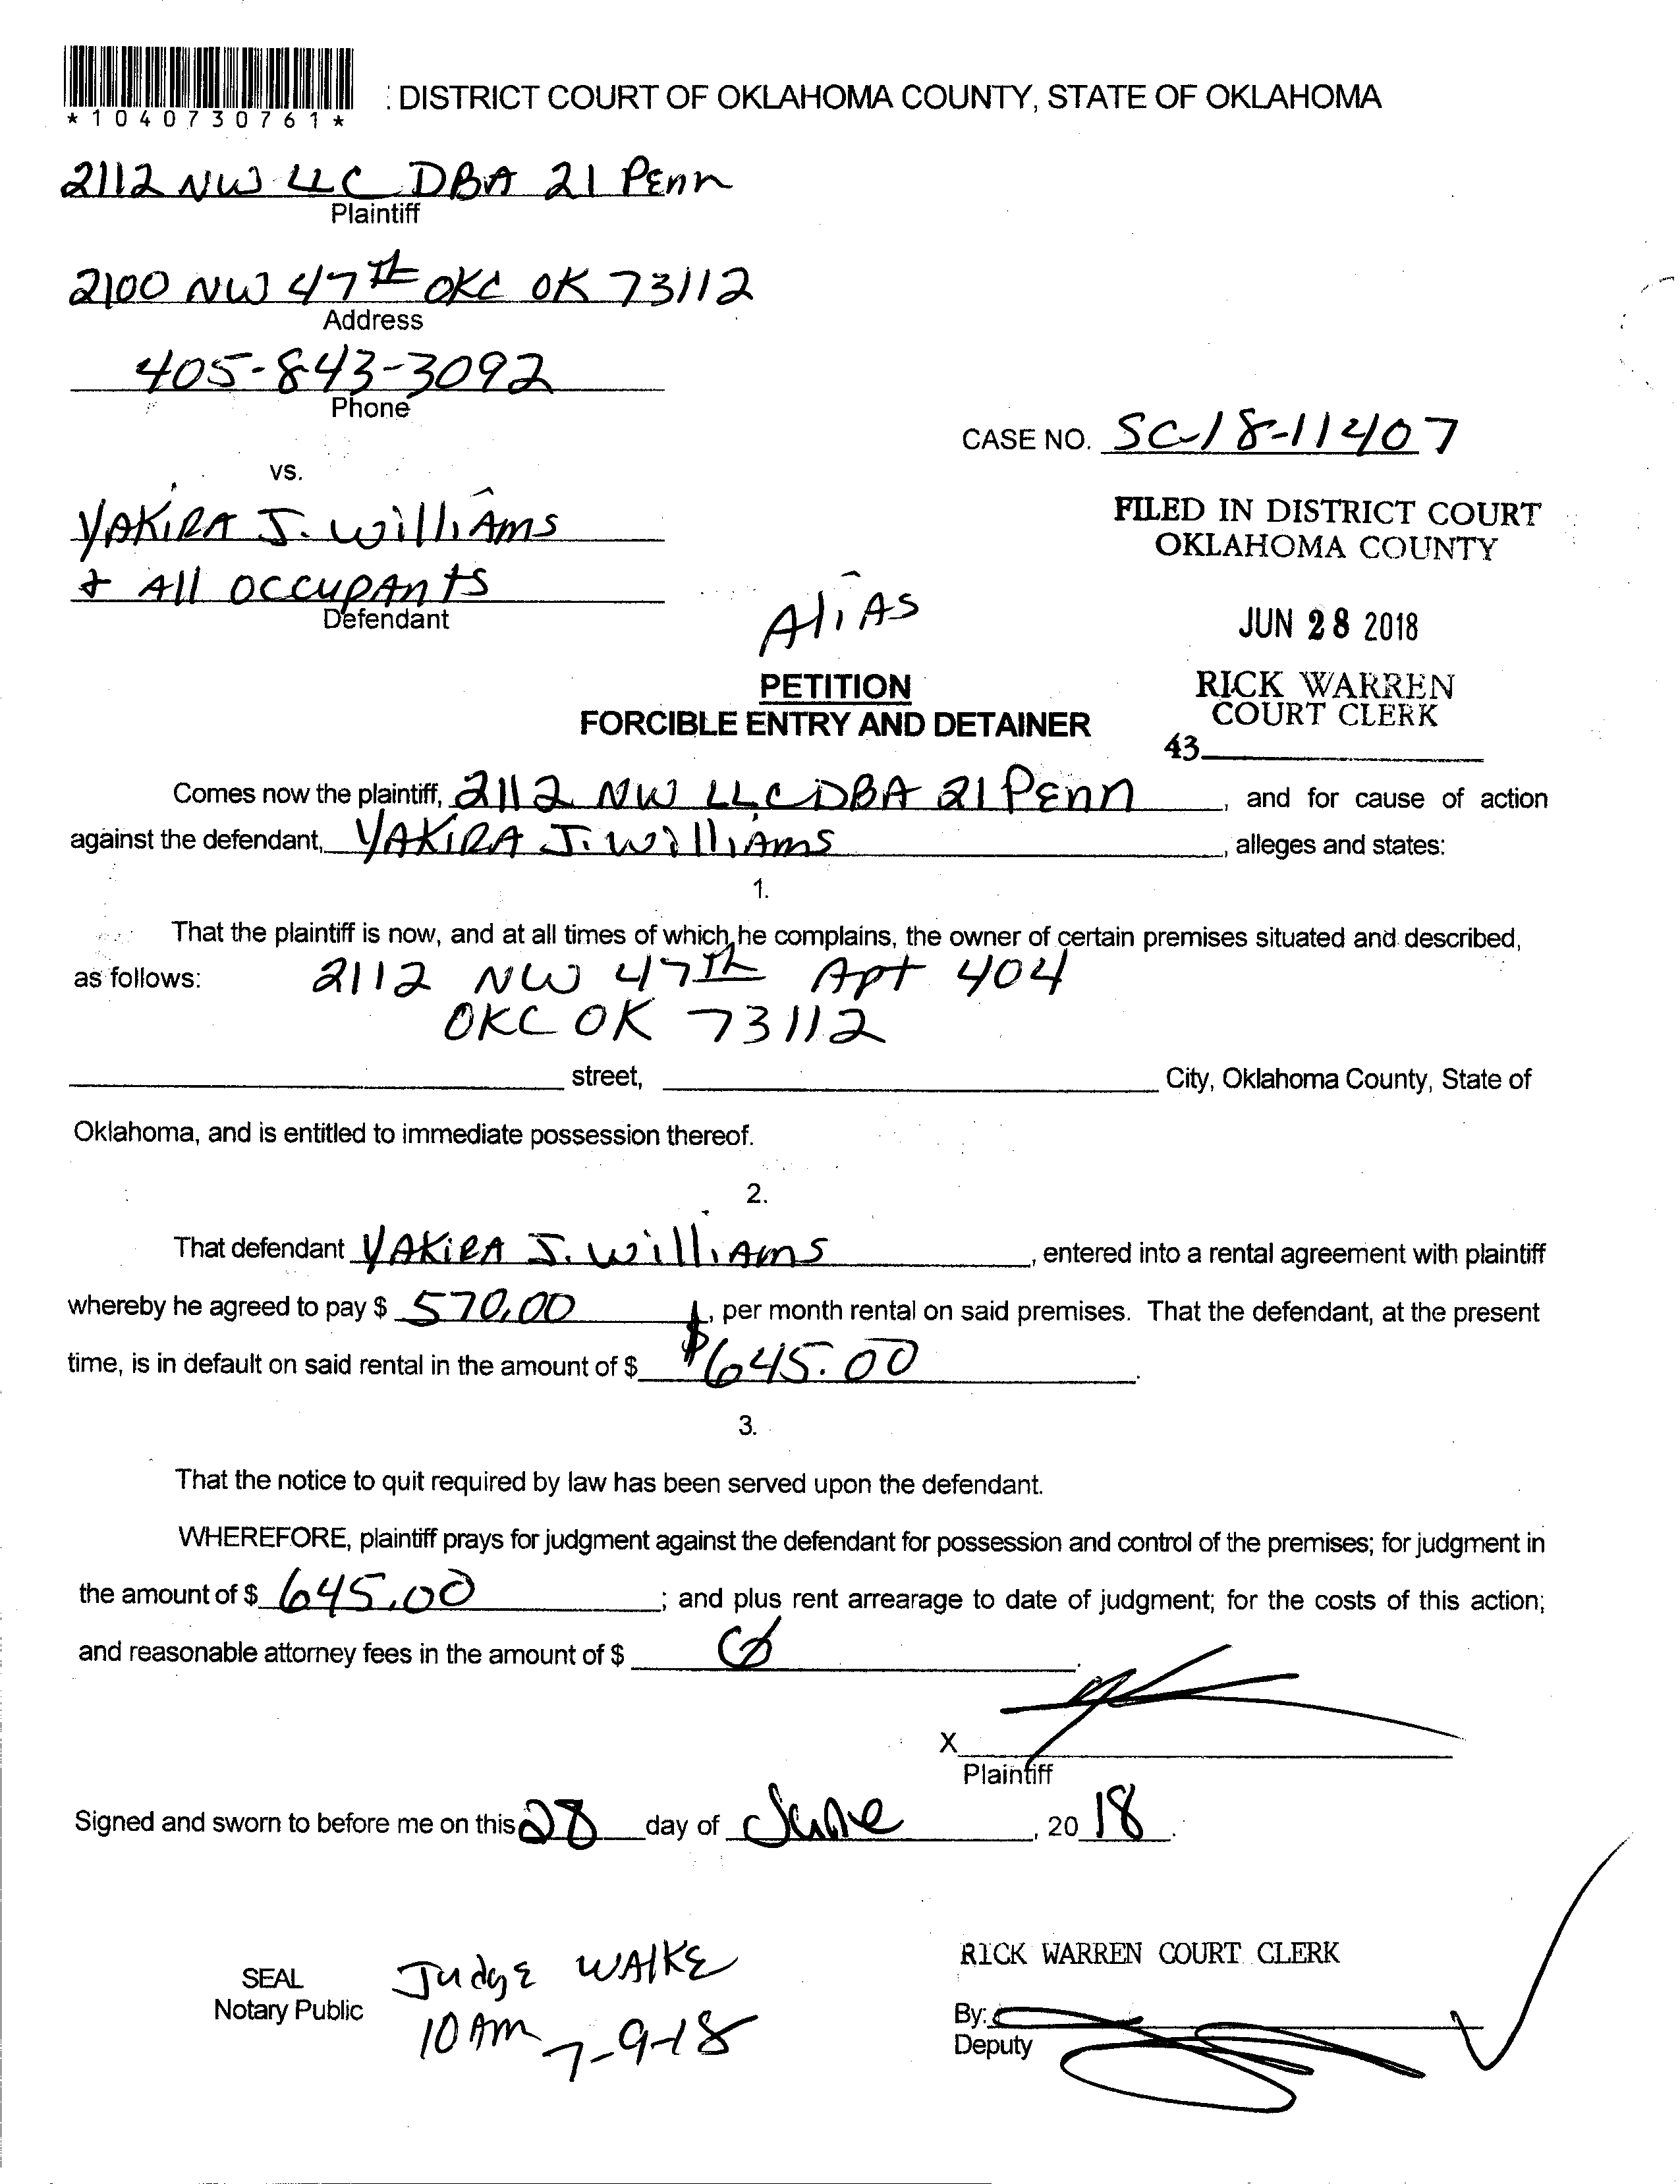 *1040730761*
: DISTRICT COURT OF OKLAHOMA COUNTY, STATE OF OKLAHOMA
2112 NW LLC DBA 21 Penn
Plaintiff
2100 NW 47th OKC OK 73112
Address
405-843-3092
Phone
CASE NO. SC-18-11407
vs.
YAKIRA J. Williams
+ All occupants
Defendant
FILED IN DISTRICT COURT
OKLAHOMA COUNTY
Alias
JUN 28 2018
PETITION
FORCIBLE ENTRY AND DETAINER
RICK WARREN
COURT CLERK
43
Comes now the plaintiff, 2112 NW LLC DBA 21 Penn, and for cause of action
against the defendant, YAKIRA J. Williams, alleges and states:
1.
That the plaintiff is now, and at all times of which he complains, the owner of certain premises situated and described,
as follows: 2112 NW 47th Apt 404
OKC OK 73112
street, City, Oklahoma County, State of
Oklahoma, and is entitled to immediate possession thereof.
2.
That defendant YAKIRA J. Williams, entered into a rental agreement with plaintiff
whereby he agreed to pay $ 570.00, per month rental on said premises. That the defendant, at the present
time, is in default on said rental in the amount of $ $645.00.
3.
That the notice to quit required by law has been served upon the defendant.
WHEREFORE, plaintiff prays for judgment against the defendant for possession and control of the premises; for judgment in
the amount of $ 645.00; and plus rent arrearage to date of judgment; for the costs of this action;
and reasonable attorney fees in the amount of $
X
Plaintiff
Signed and sworn to before me on this 28 day of June, 20 18.
SEAL
Notary Public
Judge Walke
10 Am 7-9-18
RICK WARREN COURT CLERK
By:
Deputy